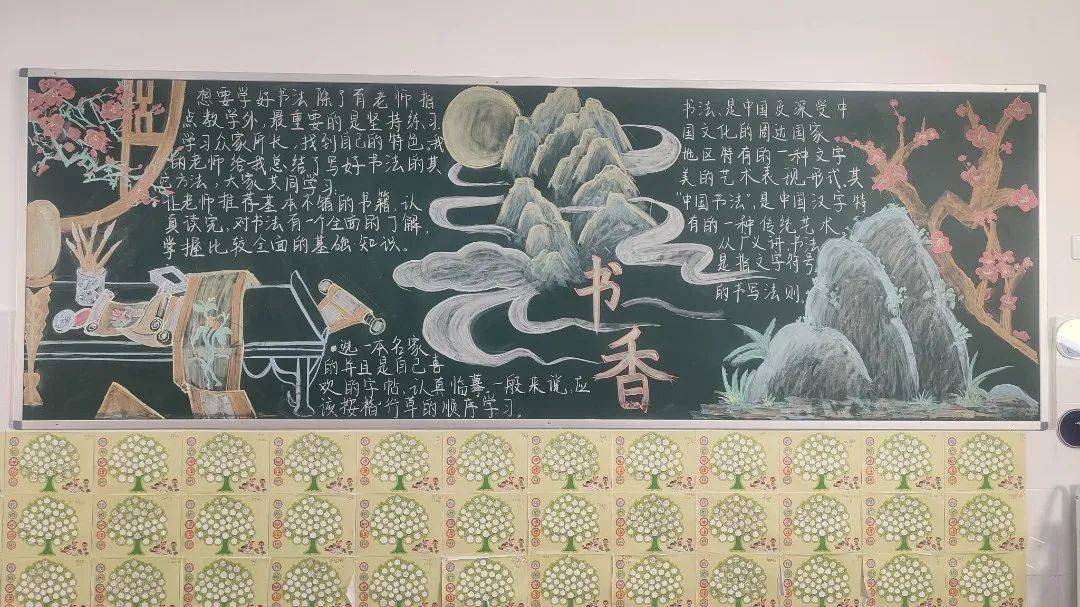 想要学好书法除了有老师指
点教学外，最重要的是坚持练习，
学习众家所长，找到自己的特色，我
的老师给我总结了写好书法的其
它方法，大家共同学习。
让老师推荐基本不错的书籍，认
真读完，对书法有一个全面的了解，
掌握比较全面的基础知识。
选一本名家
的并且是自己喜
欢的字帖，认真临摹，一般来说，应
该按楷行草的顺序学习。
书香
书法，是中国及深受中
国文化的周边国家
地区特有的一种文字
美的艺术表现形式。其
"中国书法"，是中国汉字特
有的一种传统艺术。
从广义讲书法
是指文字符号
的书写法则。